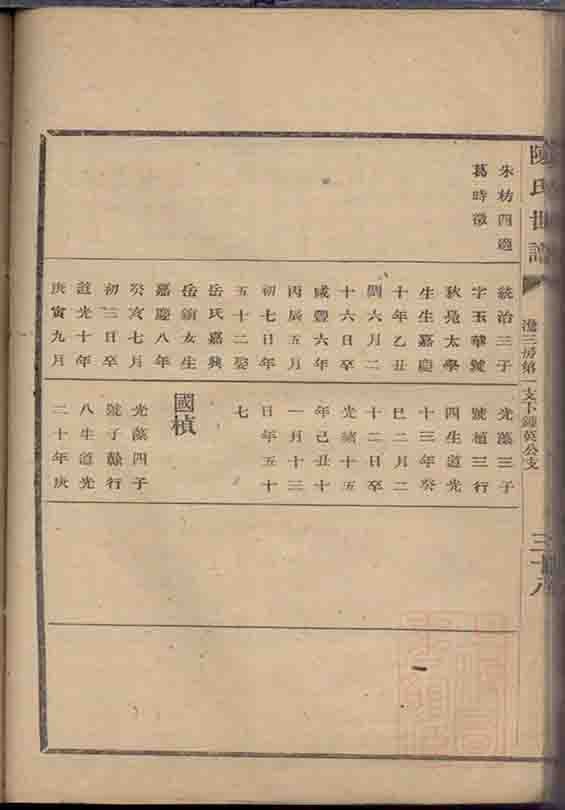 陳氏世譜
三房第一支下鍾英公支
三十八
朱枋四適
葛時徵
統治三子
字玉華號
秋堯太學
生生嘉慶
十年乙丑
閏六月二
十六日卒
咸豐六年
丙辰五月
初七日年
五十二娶
岳氏嘉興
岳鎮女生
嘉慶八年
癸亥七月
初三日卒
道光十年
庚寅九月
光藻三子
號植三行
四生道光
十三年癸
巳二月二
十二日卒
光緒十五
年己丑十
一月十三
日年五十
七
國楨
光藻四子
號子 行
八生道光
二十年庚